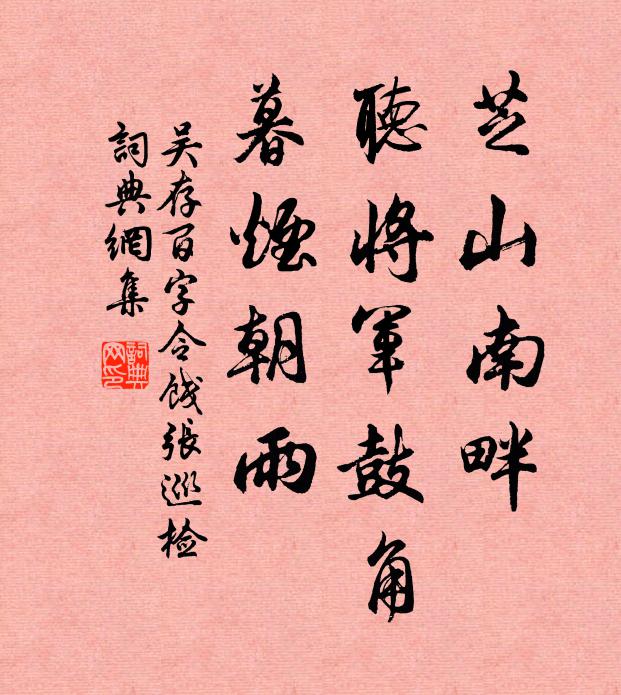 芝山南畔
聽將軍鼓角
暮煙朝雨
吴存百字令餞張巡检
詞典網集
詞典網印